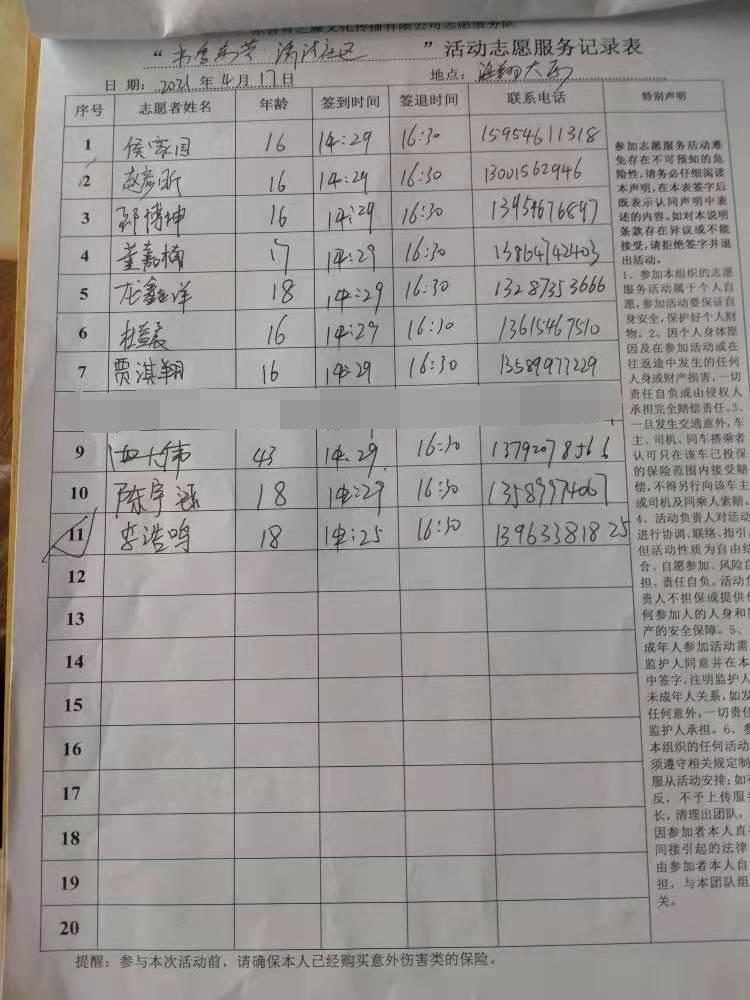 文化传播有限公司志愿服务队
“ ” 活动志愿服务记录表
日 期: 2021 年 4 月 17 日 地点:
序号 志愿者姓名 年龄 签到时间 签退时间 联系电话 特别声明
1 侯家国 16 14:29 16:30 15954611318
2 赵彦昕 16 14:29 16:30 13001562946
3 郑博坤 16 14:29 16:30 13954676897
4 董嘉楠 17 14:29 16:30 13864742403
5 龙鑫洋 18 14:29 16:30 13287353666
6 16 14:29 16:30 13615467510
7 贾淇翔 16 14:29 16:30 13589977229
9 43 14:29 16:30 13792078566
10 陈宇涵 18 14:29 16:30 13589974067
11 李浩鸣 18 14:25 16:30 13963381825
12
13
14
15
16
17
18
19
20
参加志愿服务活动难
免存在不可预知的危
险性,请务必仔细阅读
本声明,在本表签字后
既表示认同声明中表
述的内容。如对本说明
条款存在异议或不能
接受,请拒绝签字并退
出活动。
1、参加本组织的志愿
服务活动属于个人自
愿,参加活动要保证自
身安全,保护好个人财
物。2、因个人身体原
因及在参加活动或在
往返途中发生的任何
人身或财产损害,一切
责任自负或由侵权人
承担完全赔偿责任。3、
一旦发生交通意外,车
主、司机、同车搭乘者
认可只在该车已投保
的保险范围内接受赔
偿,不得另行向该车主
或司机及同乘人索赔。
4、活动负责人对活动
进行协调、联络、指引,
但活动性质为自由结
合、自愿参加、风险自
担、责任自负。活动负
责人不担保或提供任
何参加人的人身和财
产的安全保障。5、
成年人参加活动需
监护人同意并在本
中签字,注明监护人
未成年人关系,如发
任何意外,一切责任
监护人承担。6、参
本组织的任何活动
须遵守相关规定制
服从活动安排;如有
反,不予上传服务
长,清理出团队。
因参加者本人直
间接引起的法律
由参加者本人自
担,与本团队组
关。
提醒:参与本次活动前,请确保本人已经购买意外伤害类的保险。